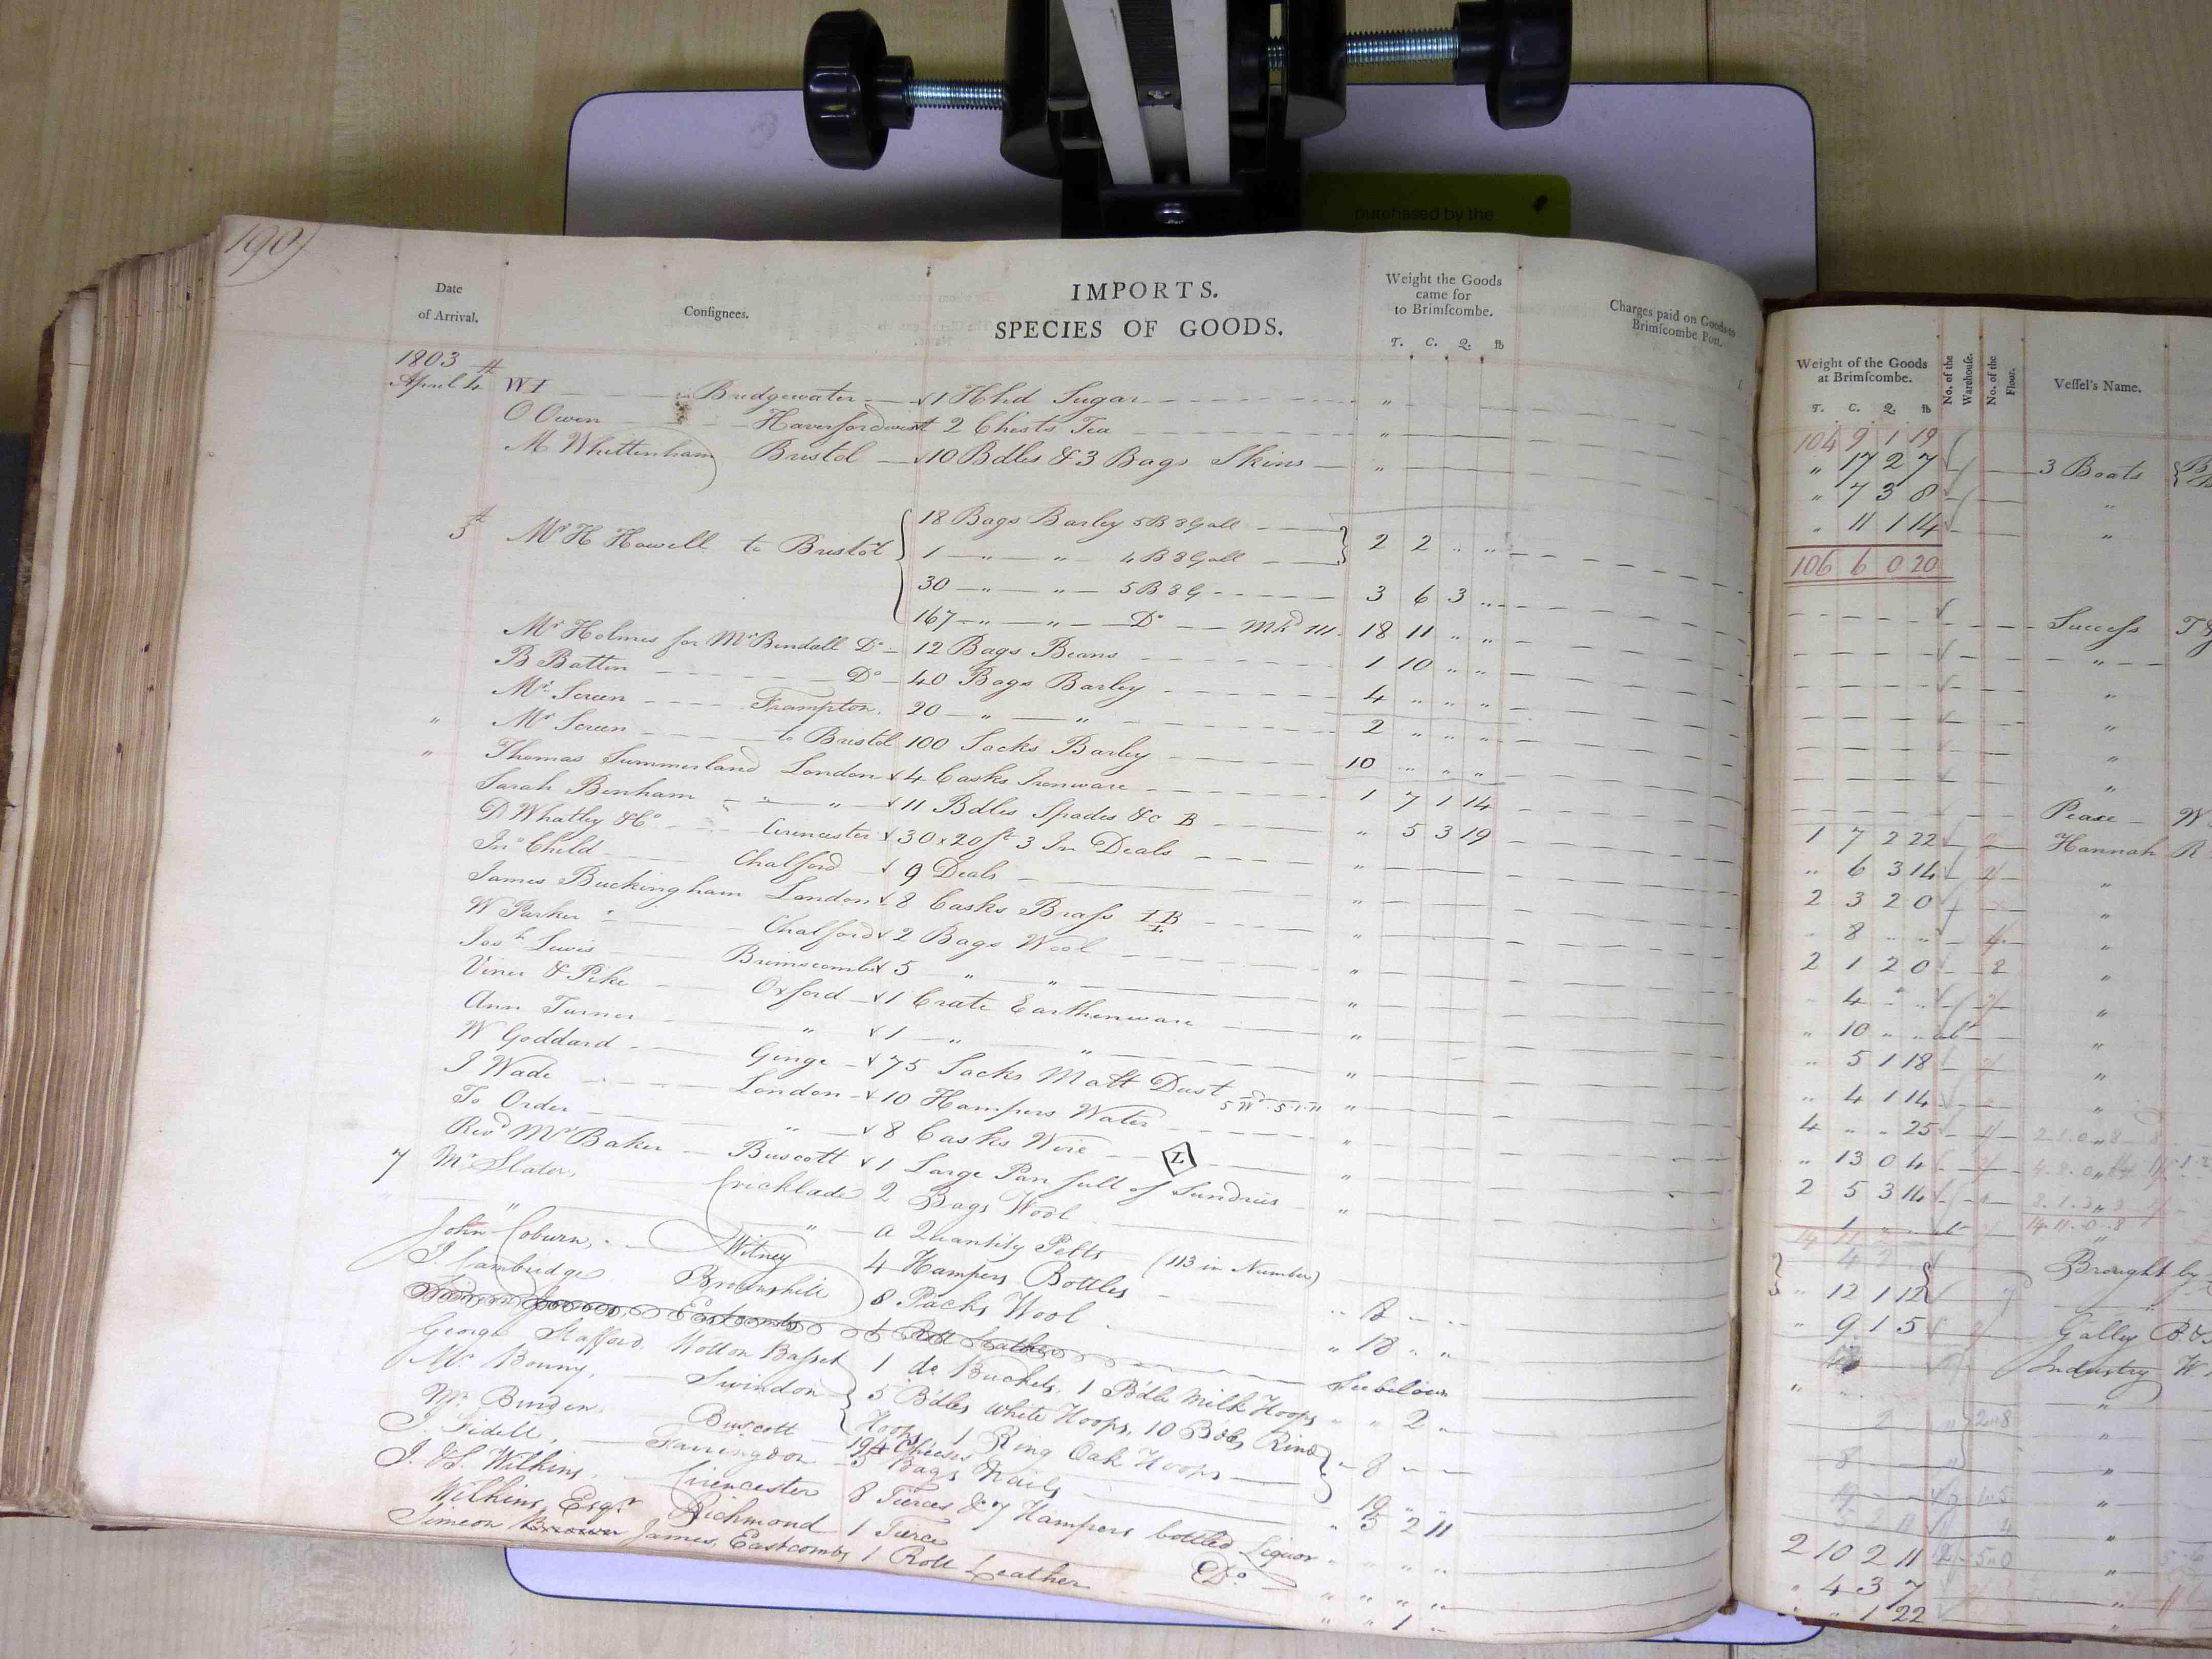 purchased by the
190)
IMPORTS.
Date of Arrival.
Consignees.
SPECIES OF GOODS.
Weight the Goods came for to Brimscombe.
T. C. Q. lb
Charges paid on Goods to Brimscombe Port.
Weight of the Goods at Brimscombe.
T. C. Q. lb
No. of the Warehouse.
No. of the Floor.
Vessel's Name.
1803
104 9 1 19
April 4th WI Bridgewater 1 Hhd Sugar " " 17 2 7 3 Boats
O Owen Haverfordwest 2 Chests Tea " " 7 3 8 "
M Whittenham Bristol 10 Bdles & 3 Bags Skins " " 11 1 14 "
106 6 0 20
5th Mr H Howell to Bristol 18 Bags Barley 5B 3 Gall 2 2 " " Success
1 " " 4 B 8 Gall "
30 " " 5 B 8 G 3 6 3 " "
167 " " Do Mkd 111 18 11 " " "
Mr Holmes for Mr Bendall Do 12 Bags Beans 1 10 " " "
B Batten Do 40 Bags Barley 4 " " " "
Mr Screen Frampton 20 " " 2 " " "
" Mr Screen to Bristol 100 Sacks Barley 10 " " " Peace W
" Thomas Summerland London 4 Casks Ironware 1 7 1 14 1 7 2 22 Hannah R
Sarah Benham " " 11 Bdles Spades &c B " 5 3 19 " 6 3 14 "
D Whatley & Co Cirencester 30 x 20 ft 3 In Deals " 2 3 2 0 "
Jno Child Chalford 9 Deals " " 8 " " 4 "
James Buckingham London 8 Casks Brass IB L " 2 1 2 0 2 "
W Parker Chalford 2 Bags Wool " " 4 " " "
Josh Lewis Brimscombe 5 " " " " 10 " " "
Viner & Pike Oxford 1 Crate Earthenware " " 5 1 18 "
Ann Turner " 1 " " " " 4 1 14 "
W Goddard Ginge 75 Sacks Malt Dust " 4 " " 25
I Wade London 10 Hampers Water " " 13 0 4
To Order " 8 Casks Wire L " 2 5 3 14
Revd Mr Baker Buscott 1 Large Pan full of Sundries " 1
14 11 0 8
7 Mr Slater, Cricklade 2 Bags Wool Brought by
" " a Quantity Pelts (113 in Number) " 12 1 12
John Coburn, Witney 4 Hampers Bottles " 8 " " " 9 1 5 Galley
J. Cambridge Brownshill 8 Packs Wool " 18 " " Industry W
Simeon James, Eastcombs 1 Roll Leather See below "
George Stafford, Wotton Basset 1 do Buckets, 1 Bdle Milk Hoops " " 2 " "
Mr Bonny, Swindon 5 Bdles white Hoops, 10 Bdls Rind
Hoops 1 Ring Oak Hoops " 8 " " 8 "
Mr Burden, Buscott 194 Cheeses 19 " " "
J. Fidell, Farringdon 5 Bags Nails " 5 2 11 "
J. & S. Wilkins, Cirencester 8 Tierces & 7 Hampers bottled Liquor " " " " 2 10 2 11 "
Wilkins, Esqr. Richmond 1 Tierce Do. " " " " " 4 3 7 "
Simeon Brown James, Eastcombs 1 Roll Leather " " 1 " " " 1 22 "